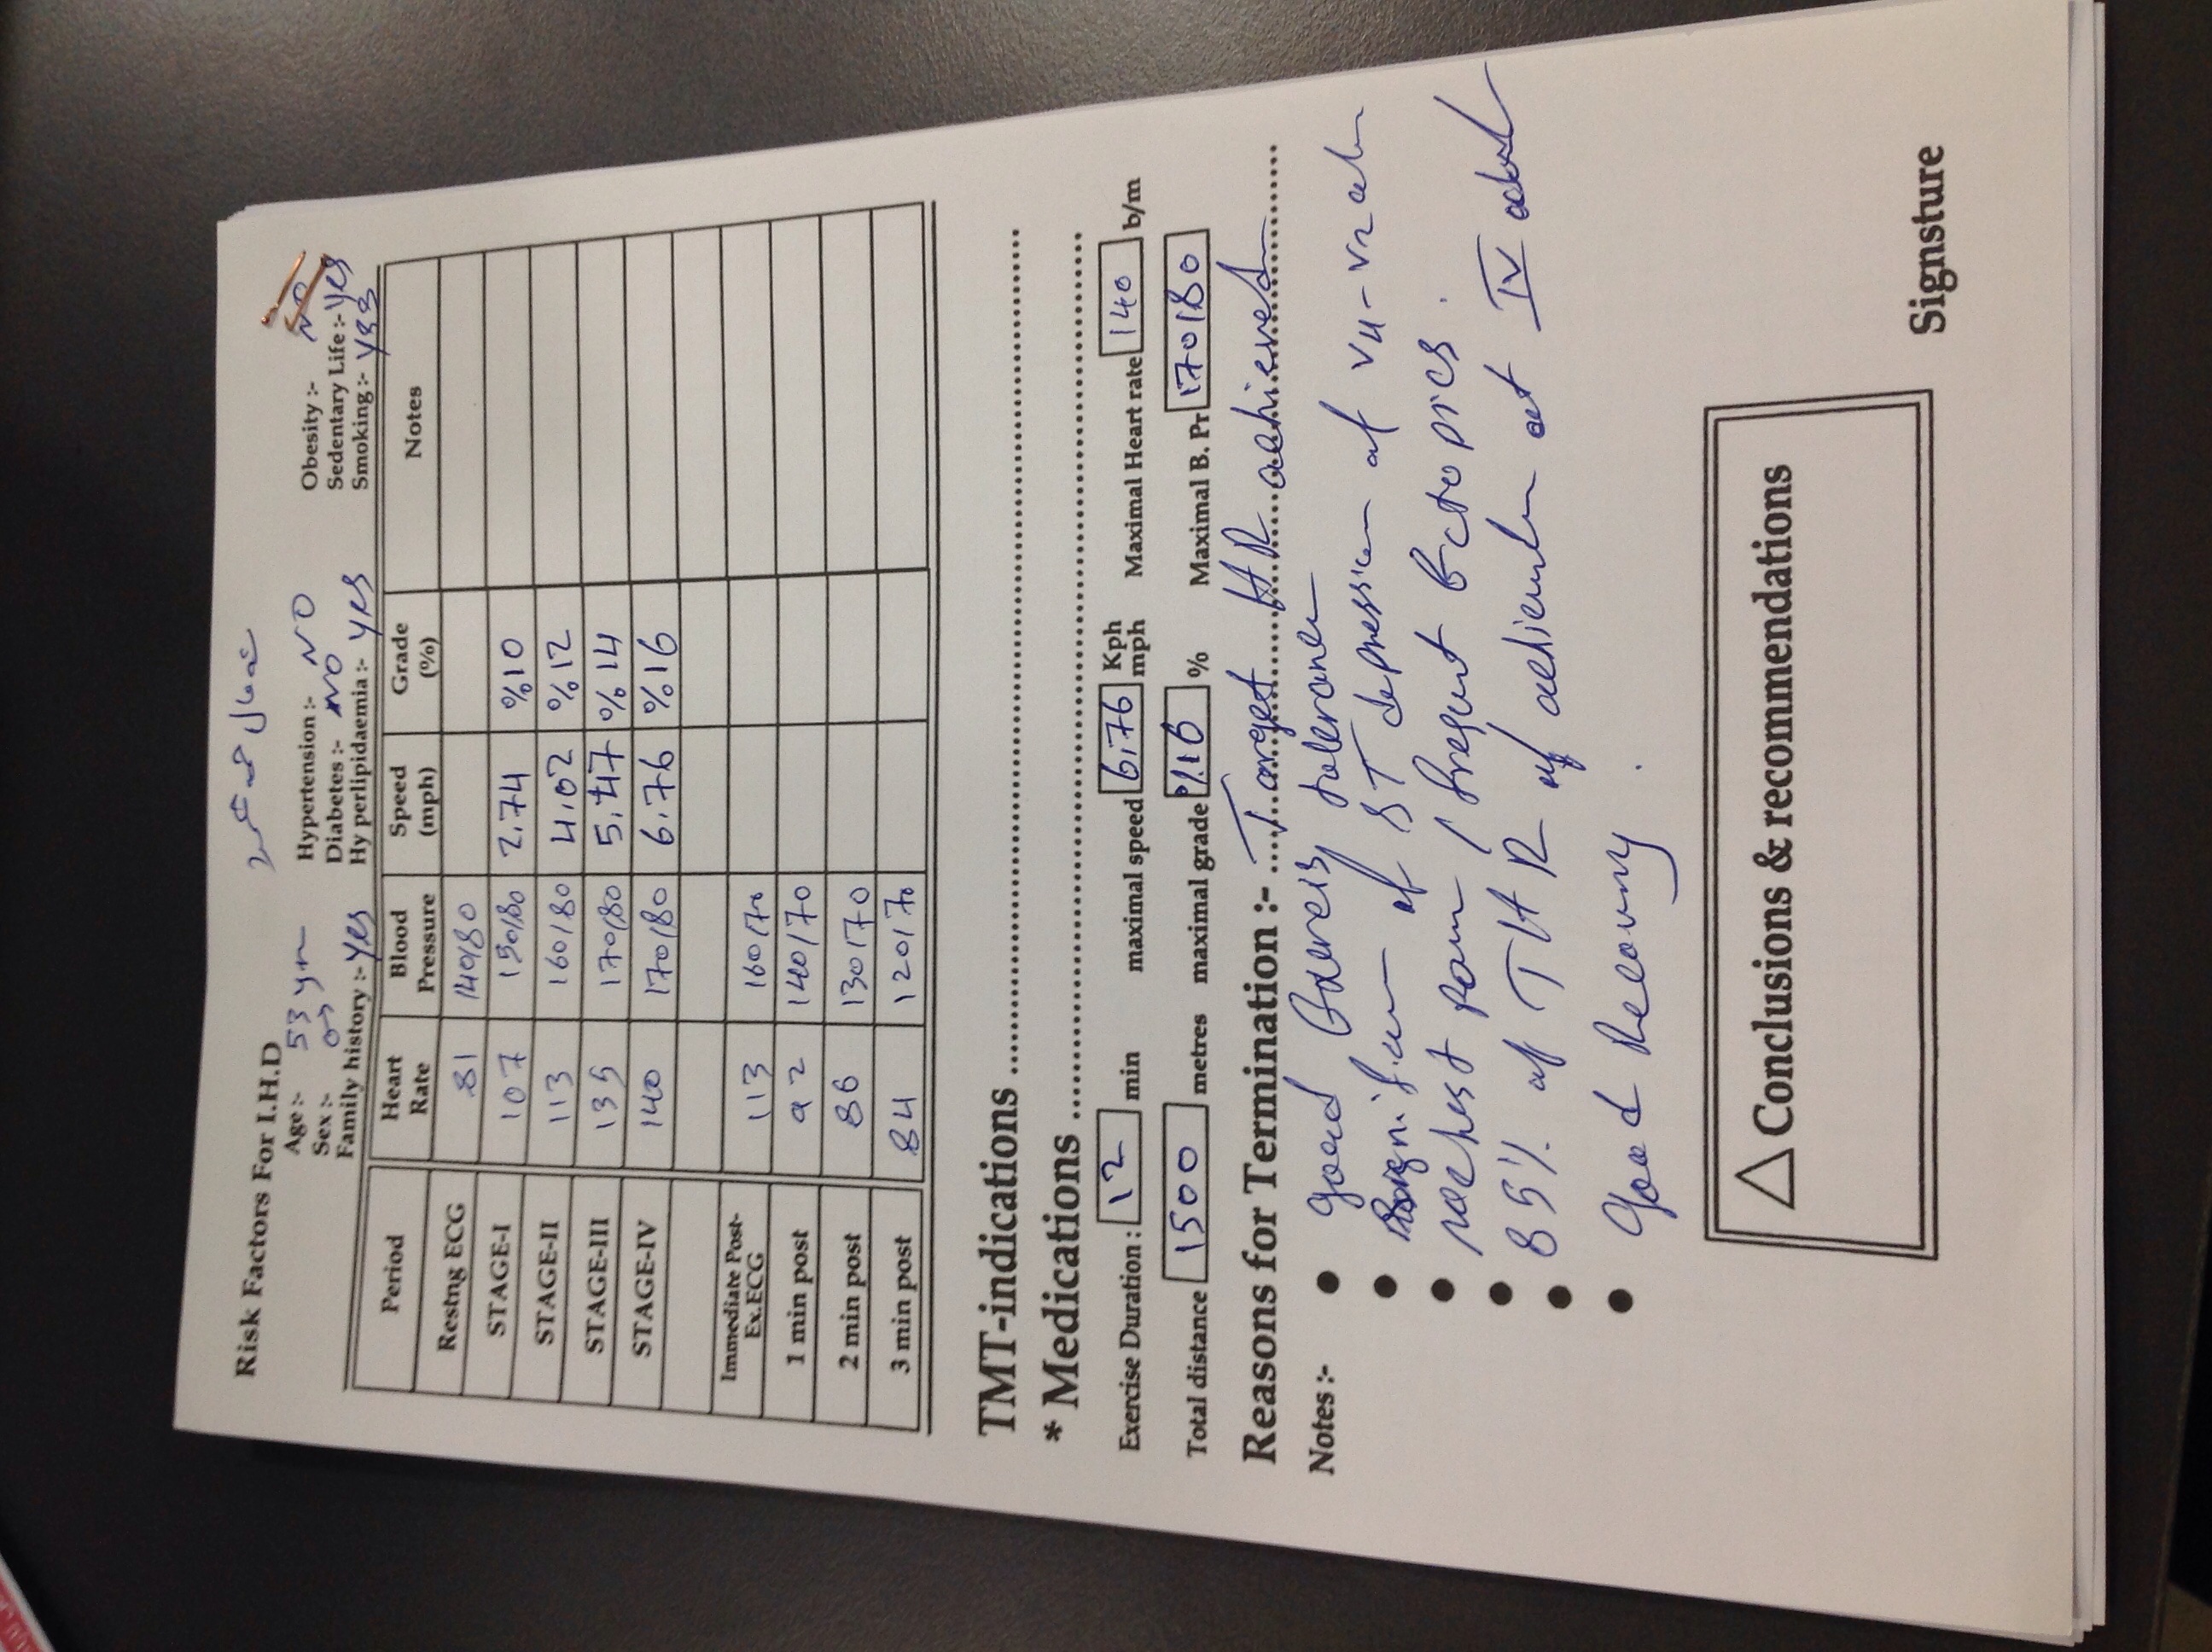 Risk Factors For I.H.D
Age :- 53 yrs Hypertension :- NO Obesity :- NO
Sex :- ♂ Diabetes :- NO Sedentary Life :- yes
Family history :- yes Hyperlipidaemia :- yes Smoking :- yes
Period Heart Rate Blood Pressure Speed (mph) Grade (%) Notes
Restng ECG 81 140/80
STAGE-I 107 150/80 2.74 %10
STAGE-II 113 160/80 4.02 %12
STAGE-III 135 170/80 5.47 %14
STAGE-IV 140 170/80 6.76 %16
Immediate Post-Ex.ECG 113 160/70
1 min post 92 140/70
2 min post 86 130/70
3 min post 84 120/70
TMT-indications
* Medications
Exercise Duration : 12 min maximal speed 6.76 Kph mph Maximal Heart rate 140 b/m
Total distance 1500 metres maximal grade %16 % Maximal B. Pr 170/80
Reasons for Termination :- Target HR achieved
Notes :- • good tolerance
• of ST depression of V4-V2
• no chest pain / frequent Ectopics.
• 85% of THR at IV
• good Recovery.
Conclusions & recommendations
Signsture